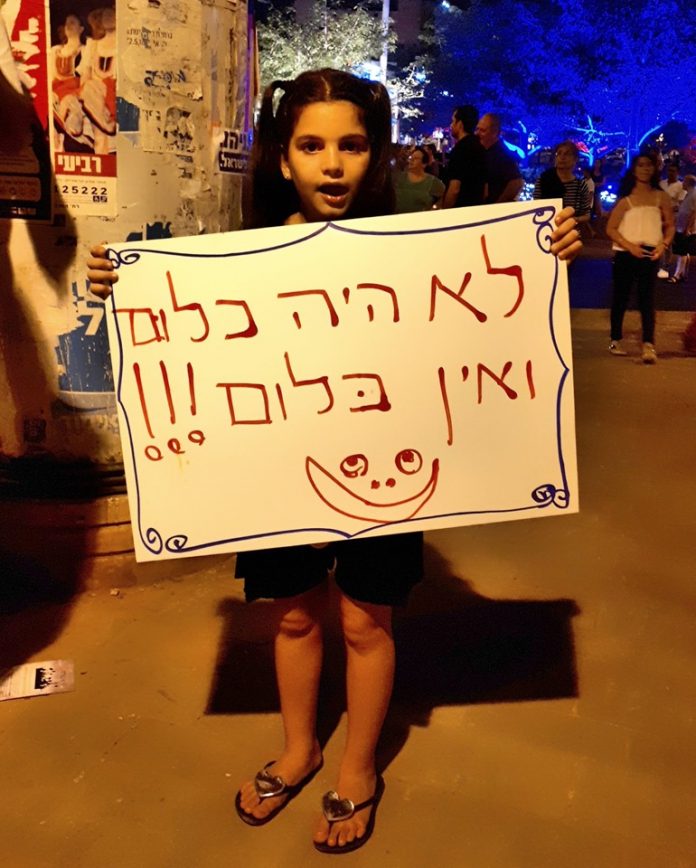 לא היה כלום
ואין כּלום !!!
רביעי
25222